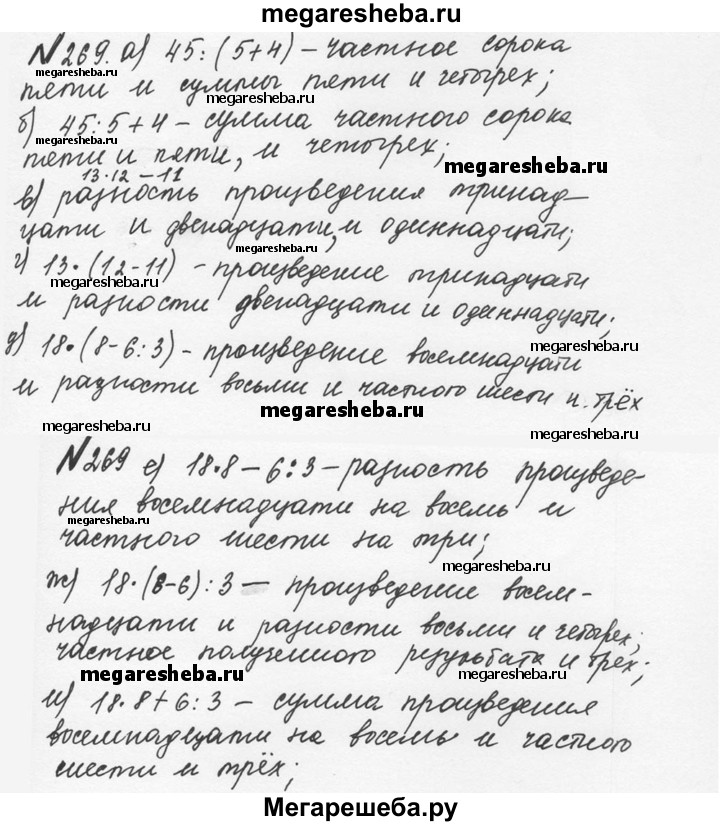 megaresheba.ru
№269. а) 45:(5+4) – частное сорока
megaresheba.ru
пяти и суммы пяти и четырех;
megaresheba.ru
б) 45:5+4 – сумма частного сорока
megaresheba.ru
пяти и пяти, и четырех;
megaresheba.ru
13·12 – 11
в) разность произведения тринад-
цати и двенадцати, и одиннадцати;
megaresheba.ru
megaresheba.ru
г) 13·(12-11) – произведение тринадцати
megaresheba.ru
и разности двенадцати и одиннадцати;
д) 18·(8-6:3) – произведение восемнадцати
megaresheba.ru
и разности восьми и частного шести и трёх
megaresheba.ru
megaresheba.ru
№269 е) 18·8 – 6:3 – разность произведе-
megaresheba.ru
ния восемнадцати на восемь и
megaresheba.ru
частного шести на три;
megaresheba.ru
ж) 18·(8-6):3 – произведение восем-
надцати и разности восьми и четырех;
частное полученного результата и трёх;
megaresheba.ru
megaresheba.ru
и) 18·8+6:3 – сумма произведения
восемнадцати на восемь и частного
шести и трёх;
Мегарешеба.ру